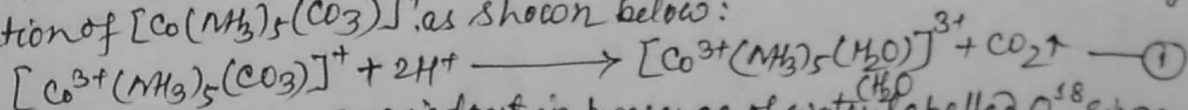 tion of [Co(NH3)5(CO3)]+ as shown below:
[Co3+(NH3)5(CO3)]+ + 2H+ ⟶ [Co3+(NH3)5(H2O)]3+ + CO2↑ — ①
(H2O